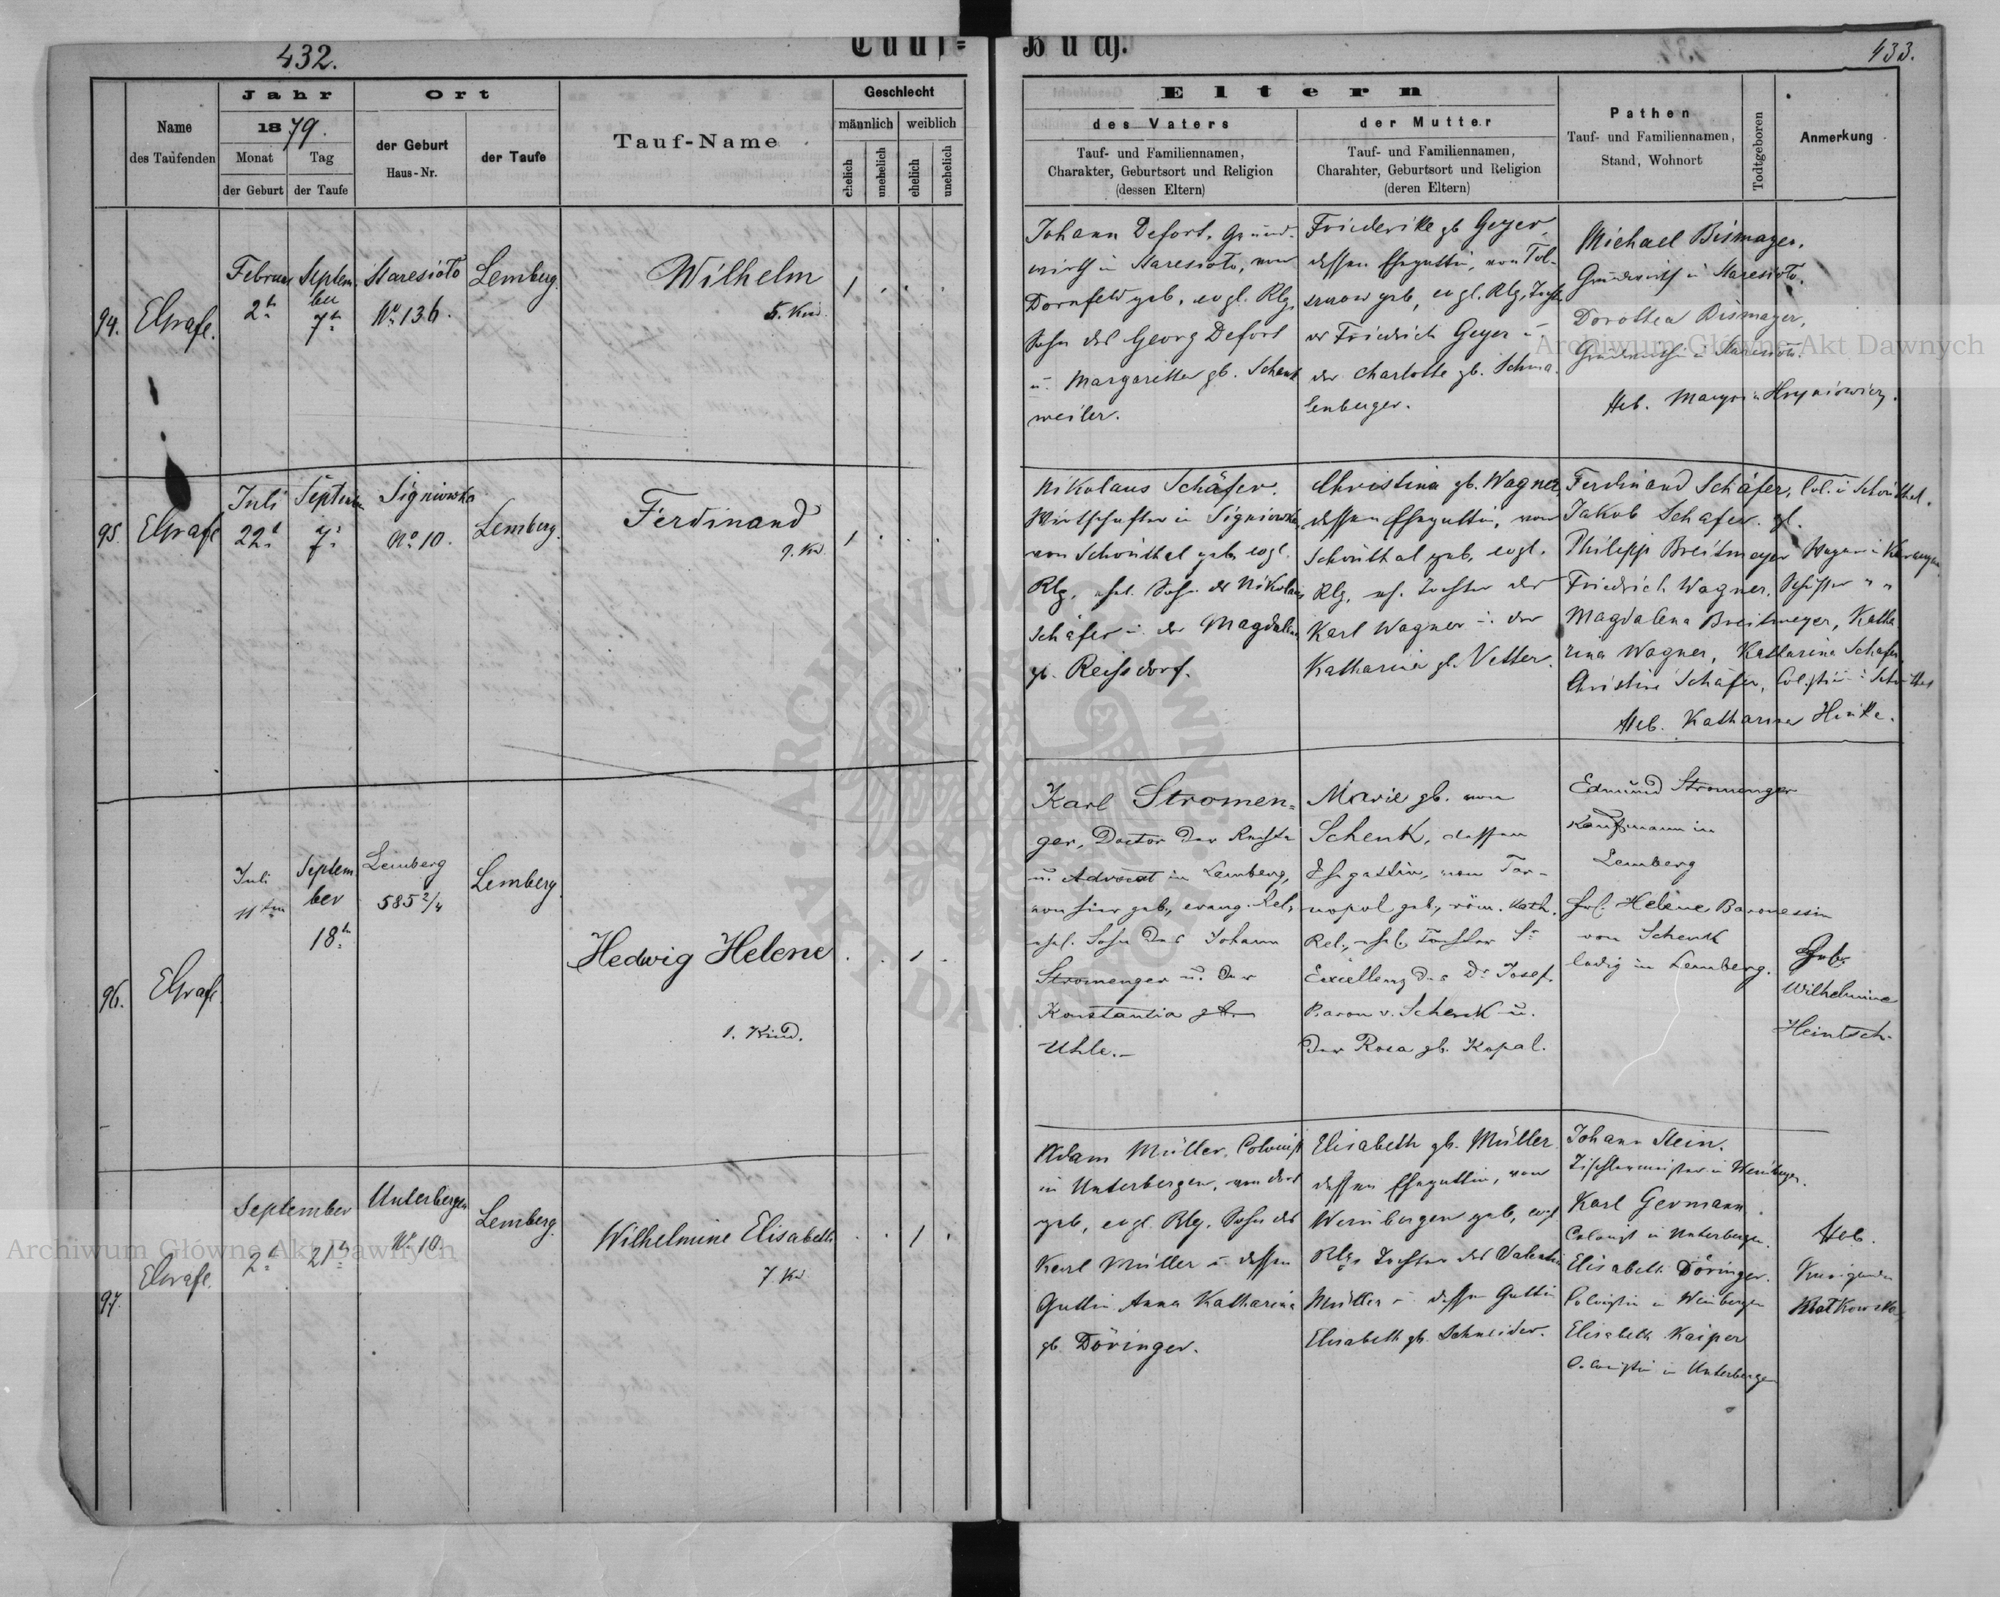 432.
Tauf=
Buch.
433.
Name
des Taufenden
Jahr
1879.
Monat
der Geburt
Tag
der Taufe
Ort
der Geburt
Haus-Nr.
der Taufe
Tauf-Name
Geschlecht
männlich
weiblich
ehelich
unehelich
ehelich
unehelich
Eltern
des Vaters
Tauf- und Familiennamen,
Charakter, Geburtsort und Religion
(dessen Eltern)
der Mutter
Tauf- und Familiennamen,
Charakter, Geburtsort und Religion
(deren Eltern)
Pathen
Tauf- und Familiennamen,
Stand, Wohnort
Todtgeboren
Anmerkung
94.
Februar
2t
Septem
ber
7t
Staresioło
No 136.
Lemberg.
Wilhelm
5. Kind.
1
Johann Defort, Grund-
wirth in Staresioło, von
Dornfeld geb, evgl. Rlg,
Sohn des Georg Defort
u. Margaretha gb. Schank
weiler.
Friederike gb Geyer,
dessen Ehegattin, von
geb, evgl. Rlg, Tocht.
Friedrich Geyer u
der Charlotte gb. Schma-
lenberger.
Michael Bismayer,
Grundwirth in Staresioło.
Dorothea Bismayer,
Grundwirthin in Staresioło.
Heb.
95.
Juli
22t
September
7t
Signiowka
No 10.
Lemberg.
Ferdinand
9. Kd.
1
Nikolaus Schäfer,
Wirtschafter in Signiowka,
von Schönthal geb, evgl.
Rlg, ehel. Sohn des Nikolaus
Schäfer u. der Magdalena
gb. Reissdorf.
Christina gb. Wagner,
dessen Ehegattin, von
Schönthal geb, evgl.
Rlg, eh. Tochter des
Karl Wagner u. der
Katharina gb. Vetter.
Ferdinand Schäfer, Col. in Schönthal.
Jakob Schäfer.
Philipp Breitmeyer
Friedrich Wagner,
Magdalena Breitmeyer, Katha
rina Wagner, Katharina Schäfer,
Christine Schäfer,
Heb. Katharina
96.
Juli
11ten
Septem
ber
18t
Lemberg
585 2/4
Lemberg.
Hedwig Helene
1. Kind.
1
Karl Stromen=
ger, Doctor der Rechte
u. Advocat in Lemberg,
von hier geb., evang. Rel.,
ehel. Sohn des Johann
Stromenger u. der
Konstantia gb.
Uhle.-
Marie gb. von
Schenk, dessen
Ehegattin, von Tar-
nopol geb., röm. kath.
Rel., ehel. Tochter Sr
Excellenz des Dr Josef
Baron v. Schenk u.
der Rosa gb. Kopal.
Edmund Stromenger
Kaufmann in
Lemberg
Frl. Helene Baronessin
von Schenk
ledig in Lemberg.
Heb.
Wilhelmine
Heintsch.
97.
September
2t
21t
Unterbergen
No 10
Lemberg.
Wilhelmine Elisabeth
7 Kd
1
Adam Müller, Colonist
in Unterbergen, von dort
geb, evgl. Rlg, Sohn des
Karl Müller u. dessen
Gattin Anna Katharina
gb Döringer.
Elisabeth gb. Müller
dessen Ehegattin, von
Weinbergen geb, evgl.
Rlg, Tochter des Valentin
Müller u. dessen Gattin
Elisabeth gb. Schneider.
Johann Stein,
Tischlermeister in Weinbergen.
Karl Germann
Colonist in Unterbergen.
Elisabeth Döringer.
Colonistin in Weinbergen
Elisabeth Kaiper
Colonistin in Unterbergen
Heb.
Archiwum Główne Akt Dawnych
Archiwum Główne Akt Dawnych
ARCHIWUM GŁÓWNE AKT DAWNYCH